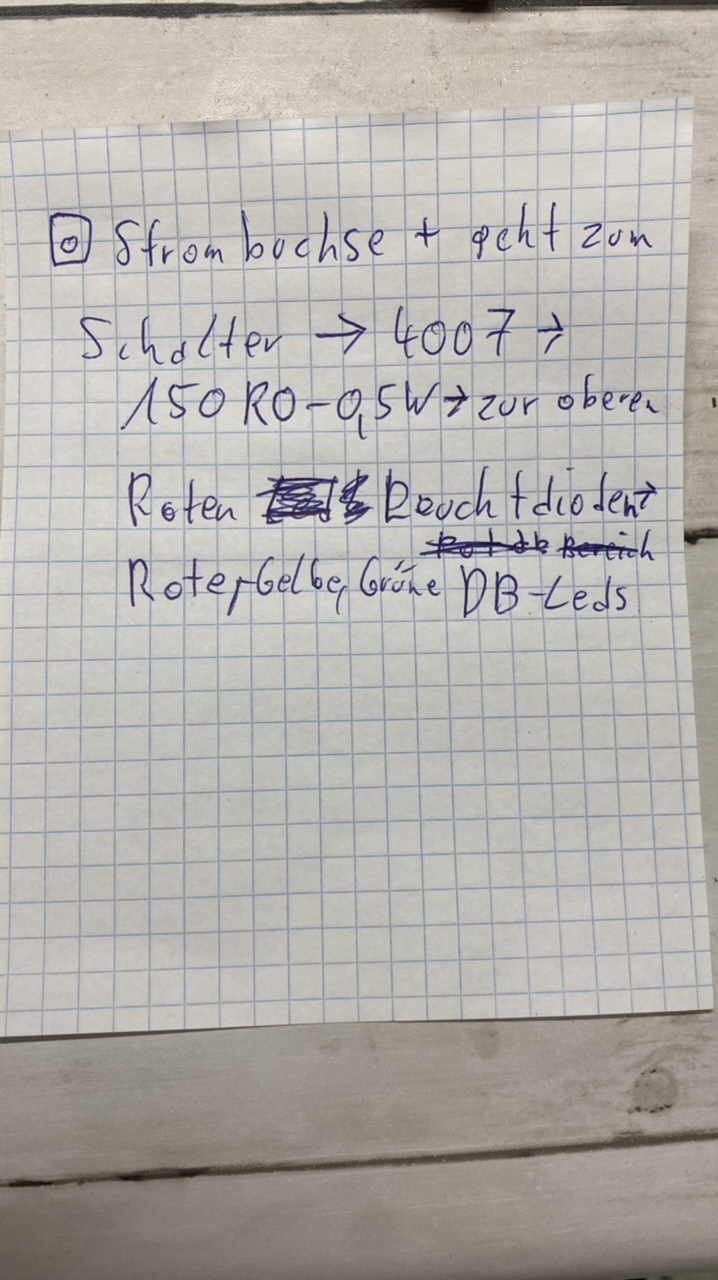 Strombuchse + geht zum
Schalter → 4007 →
150R0-0,5W → zur oberen
Roten Leuchtdioden →
Rote, Gelbe, Grüne DB-Leds